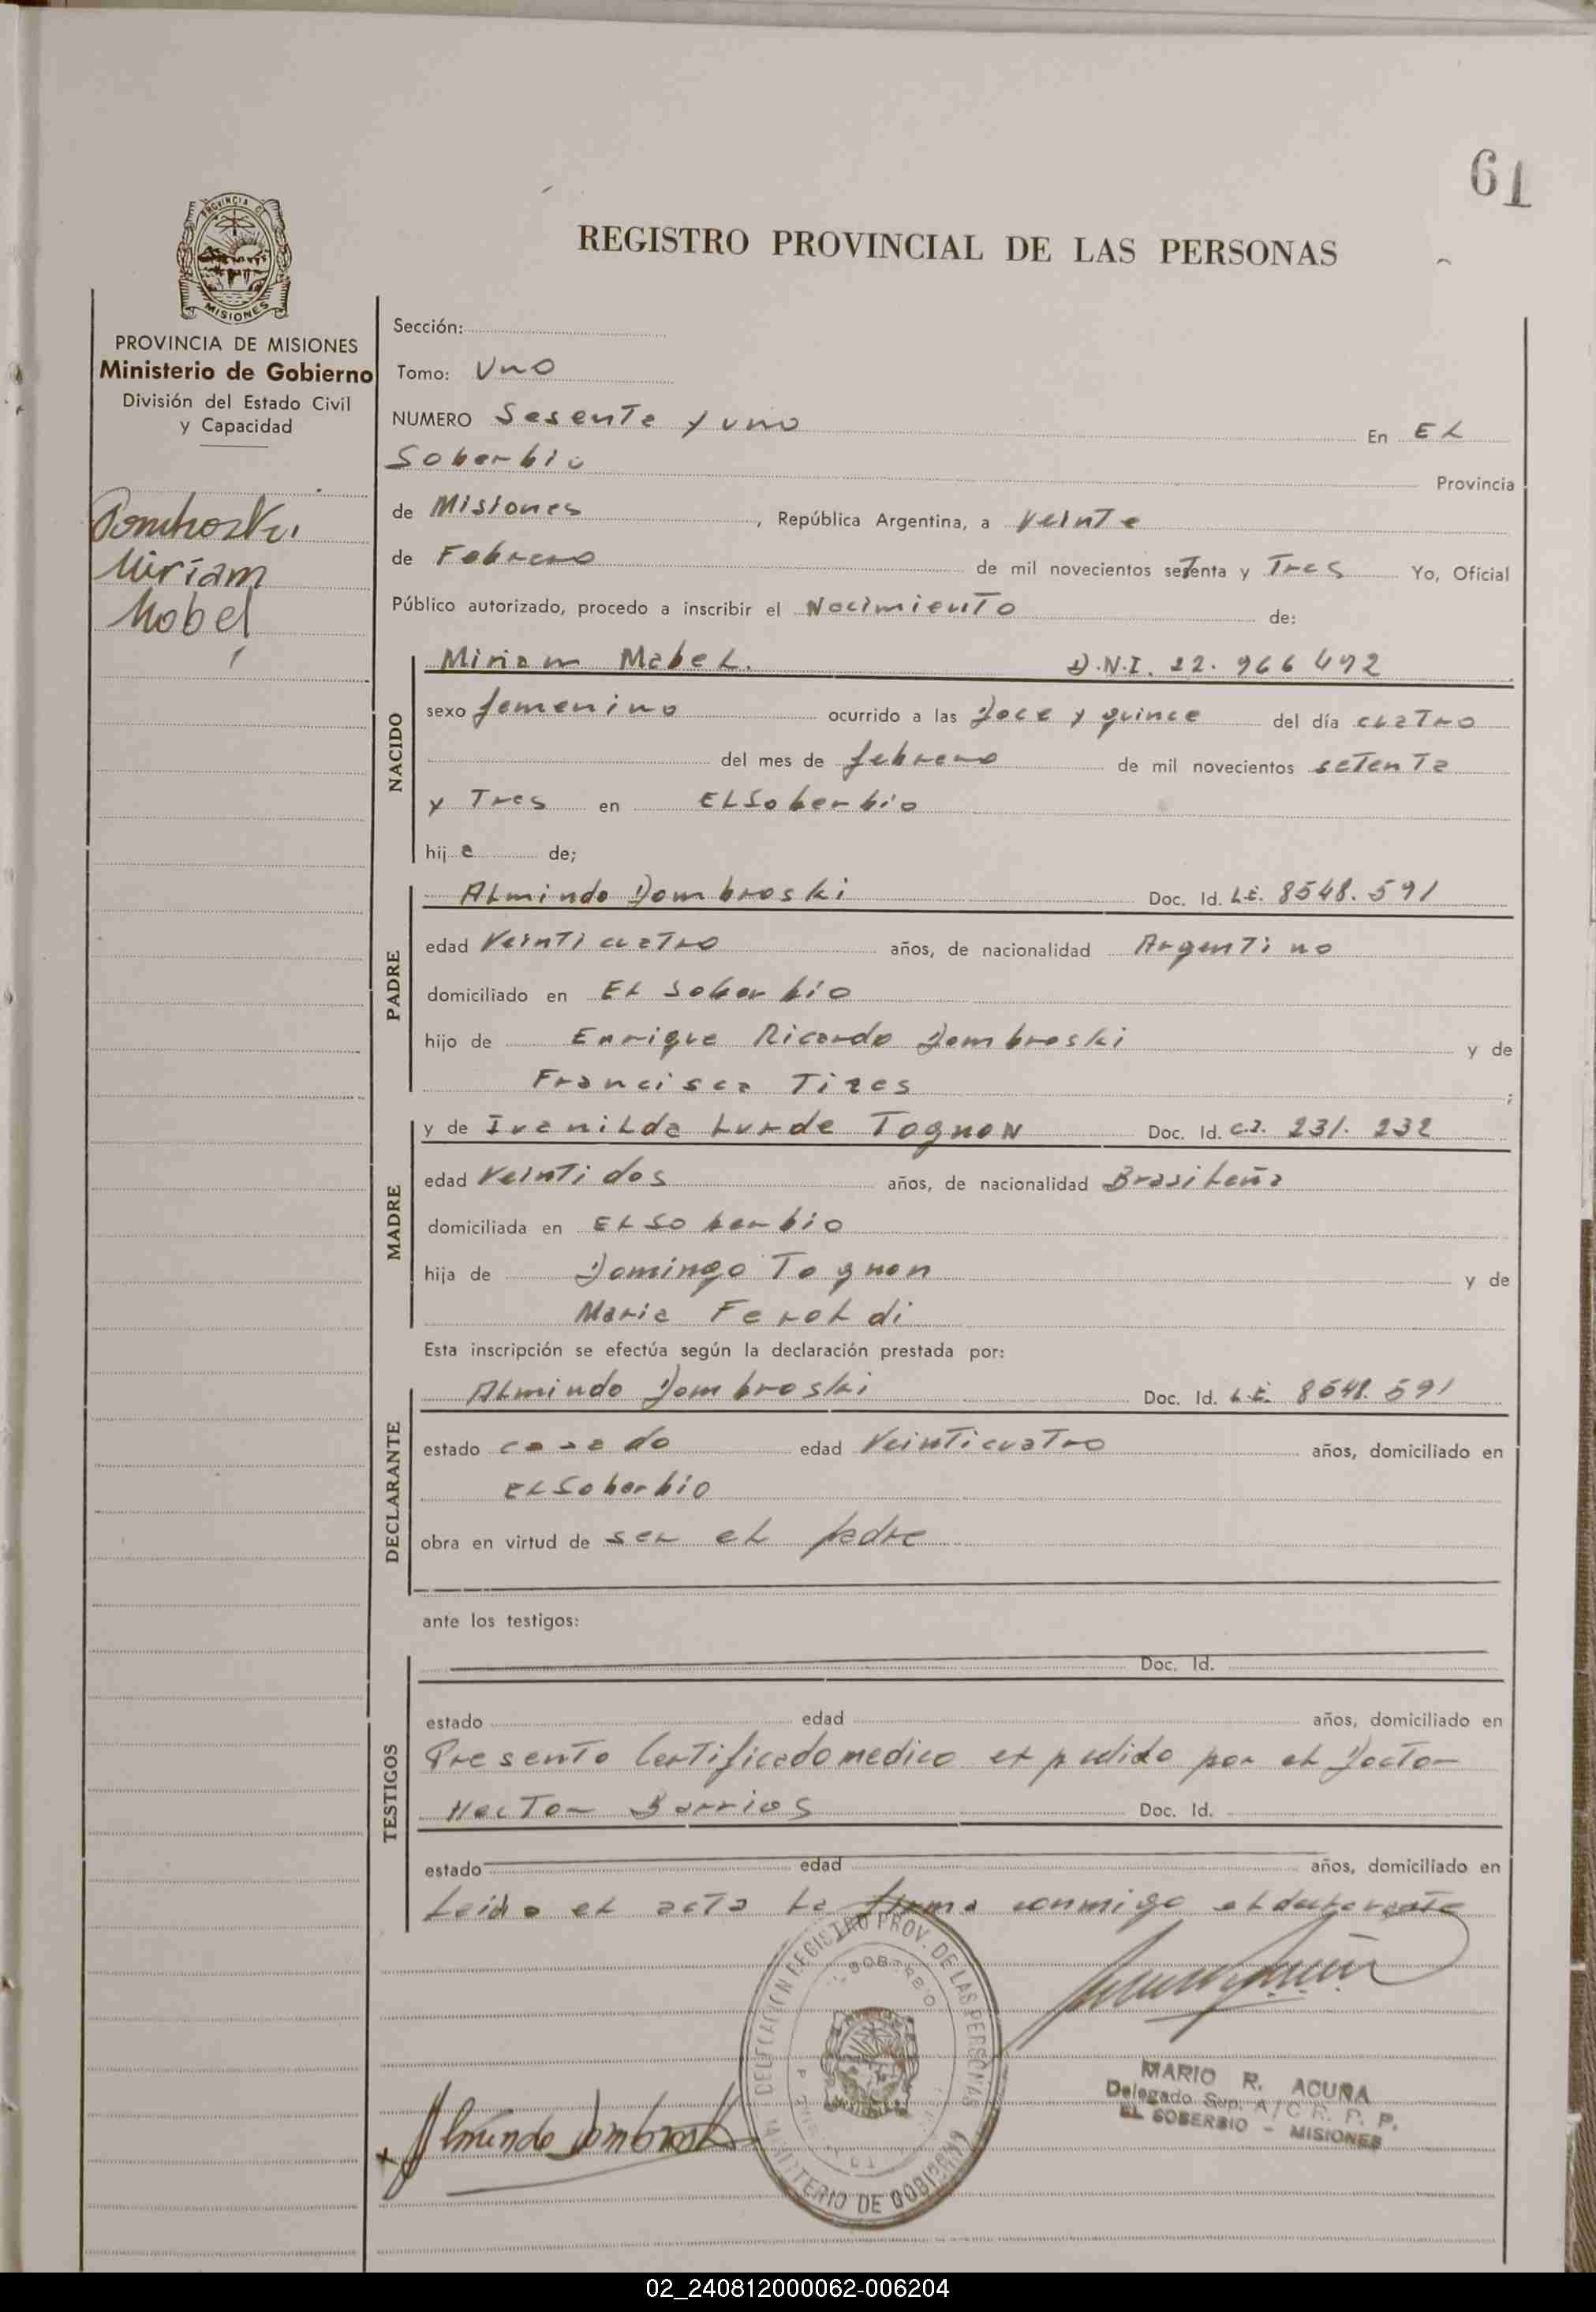 61
PROVINCIA DE
MISIONES
REGISTRO PROVINCIAL DE LAS PERSONAS
PROVINCIA DE MISIONES
Ministerio de Gobierno
División del Estado Civil
y Capacidad
Miriam
Mabel
Sección:
Tomo: Uno
NUMERO Sesenta y uno En El
Soberbio Provincia
de Misiones, República Argentina, a Veinte
de Febrero de mil novecientos setenta y Tres Yo, Oficial
Público autorizado, procedo a inscribir el Nacimiento de:
NACIDO
Miriam Mabel. D.N.I. 22.966 492
sexo femenino ocurrido a las Doce y quince del día cuatro
del mes de febrero de mil novecientos setenta
y Tres en El Soberbio
hija de;
PADRE
Almindo Dombroski Doc. Id. L.E. 8548.591
edad Veinticuatro años, de nacionalidad Argentino
domiciliado en El Soberbio
hijo de Enrique Ricardo Dombroski y de
Francisca Tires ;
MADRE
y de Ivanilda Lurde Tognon Doc. Id. C.I. 231.232
edad Veintidos años, de nacionalidad Brasileña
domiciliada en El Soberbio
hija de Domingo Tognon y de
Maria Feroldi
Esta inscripción se efectúa según la declaración prestada por:
DECLARANTE
Almindo Dombroski Doc. Id. L.E. 8548.591
estado casado edad Veinticuatro años, domiciliado en
El Soberbio
obra en virtud de ser el padre
ante los testigos:
TESTIGOS
Doc. Id.
estado edad años, domiciliado en
Presento Certificado medico expedido por el Doctor
Hector Barrios Doc. Id.
estado edad años, domiciliado en
Leida el acta la firma conmigo el declarante
DELEGACION REGISTRO PROV. DE LAS PERSONAS
MINISTERIO DE GOBIERNO
Almindo Dombroski
MARIO R. ACUÑA
Delegado Sup. A/C R. P. P.
EL SOBERBIO - MISIONES
02_240812000062-006204